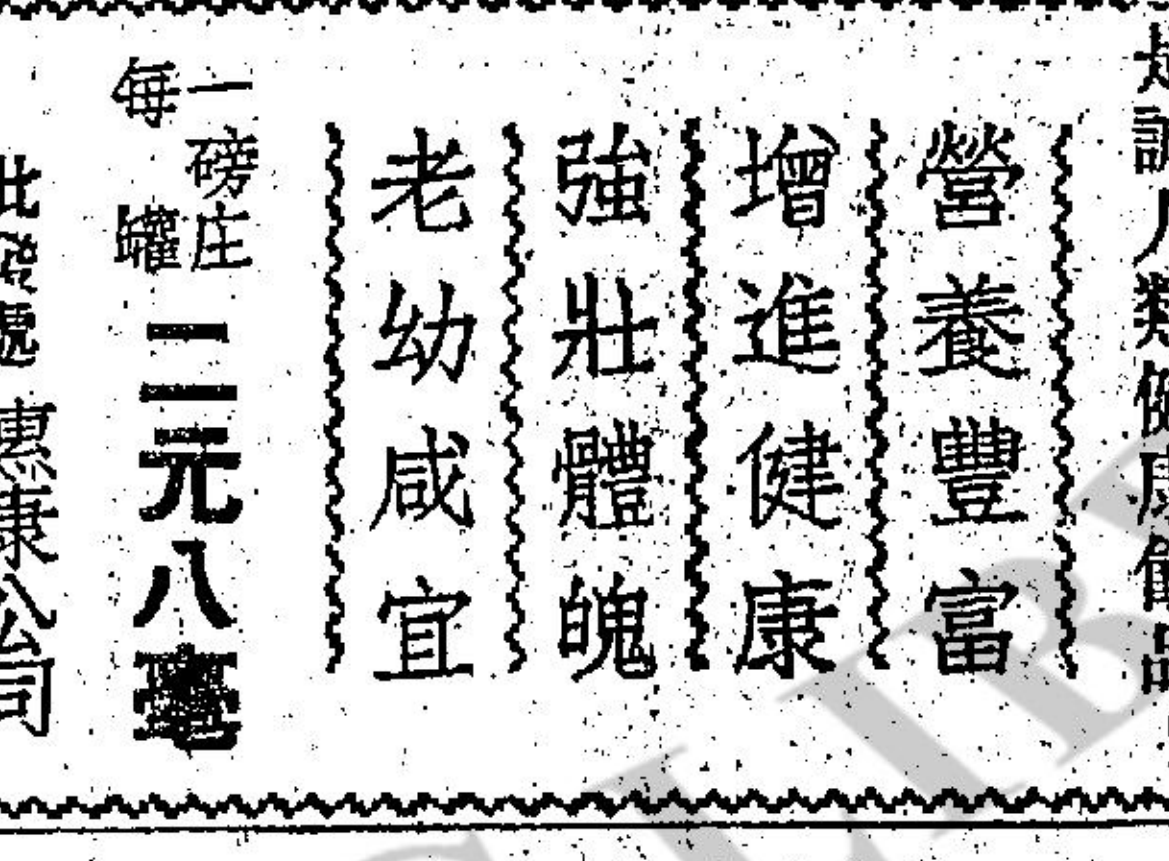 人類健康品
營養豐富
增進健康
強壯體魄
老幼咸宜
一磅庄
每罐
二元八毫
批發處 惠康公司